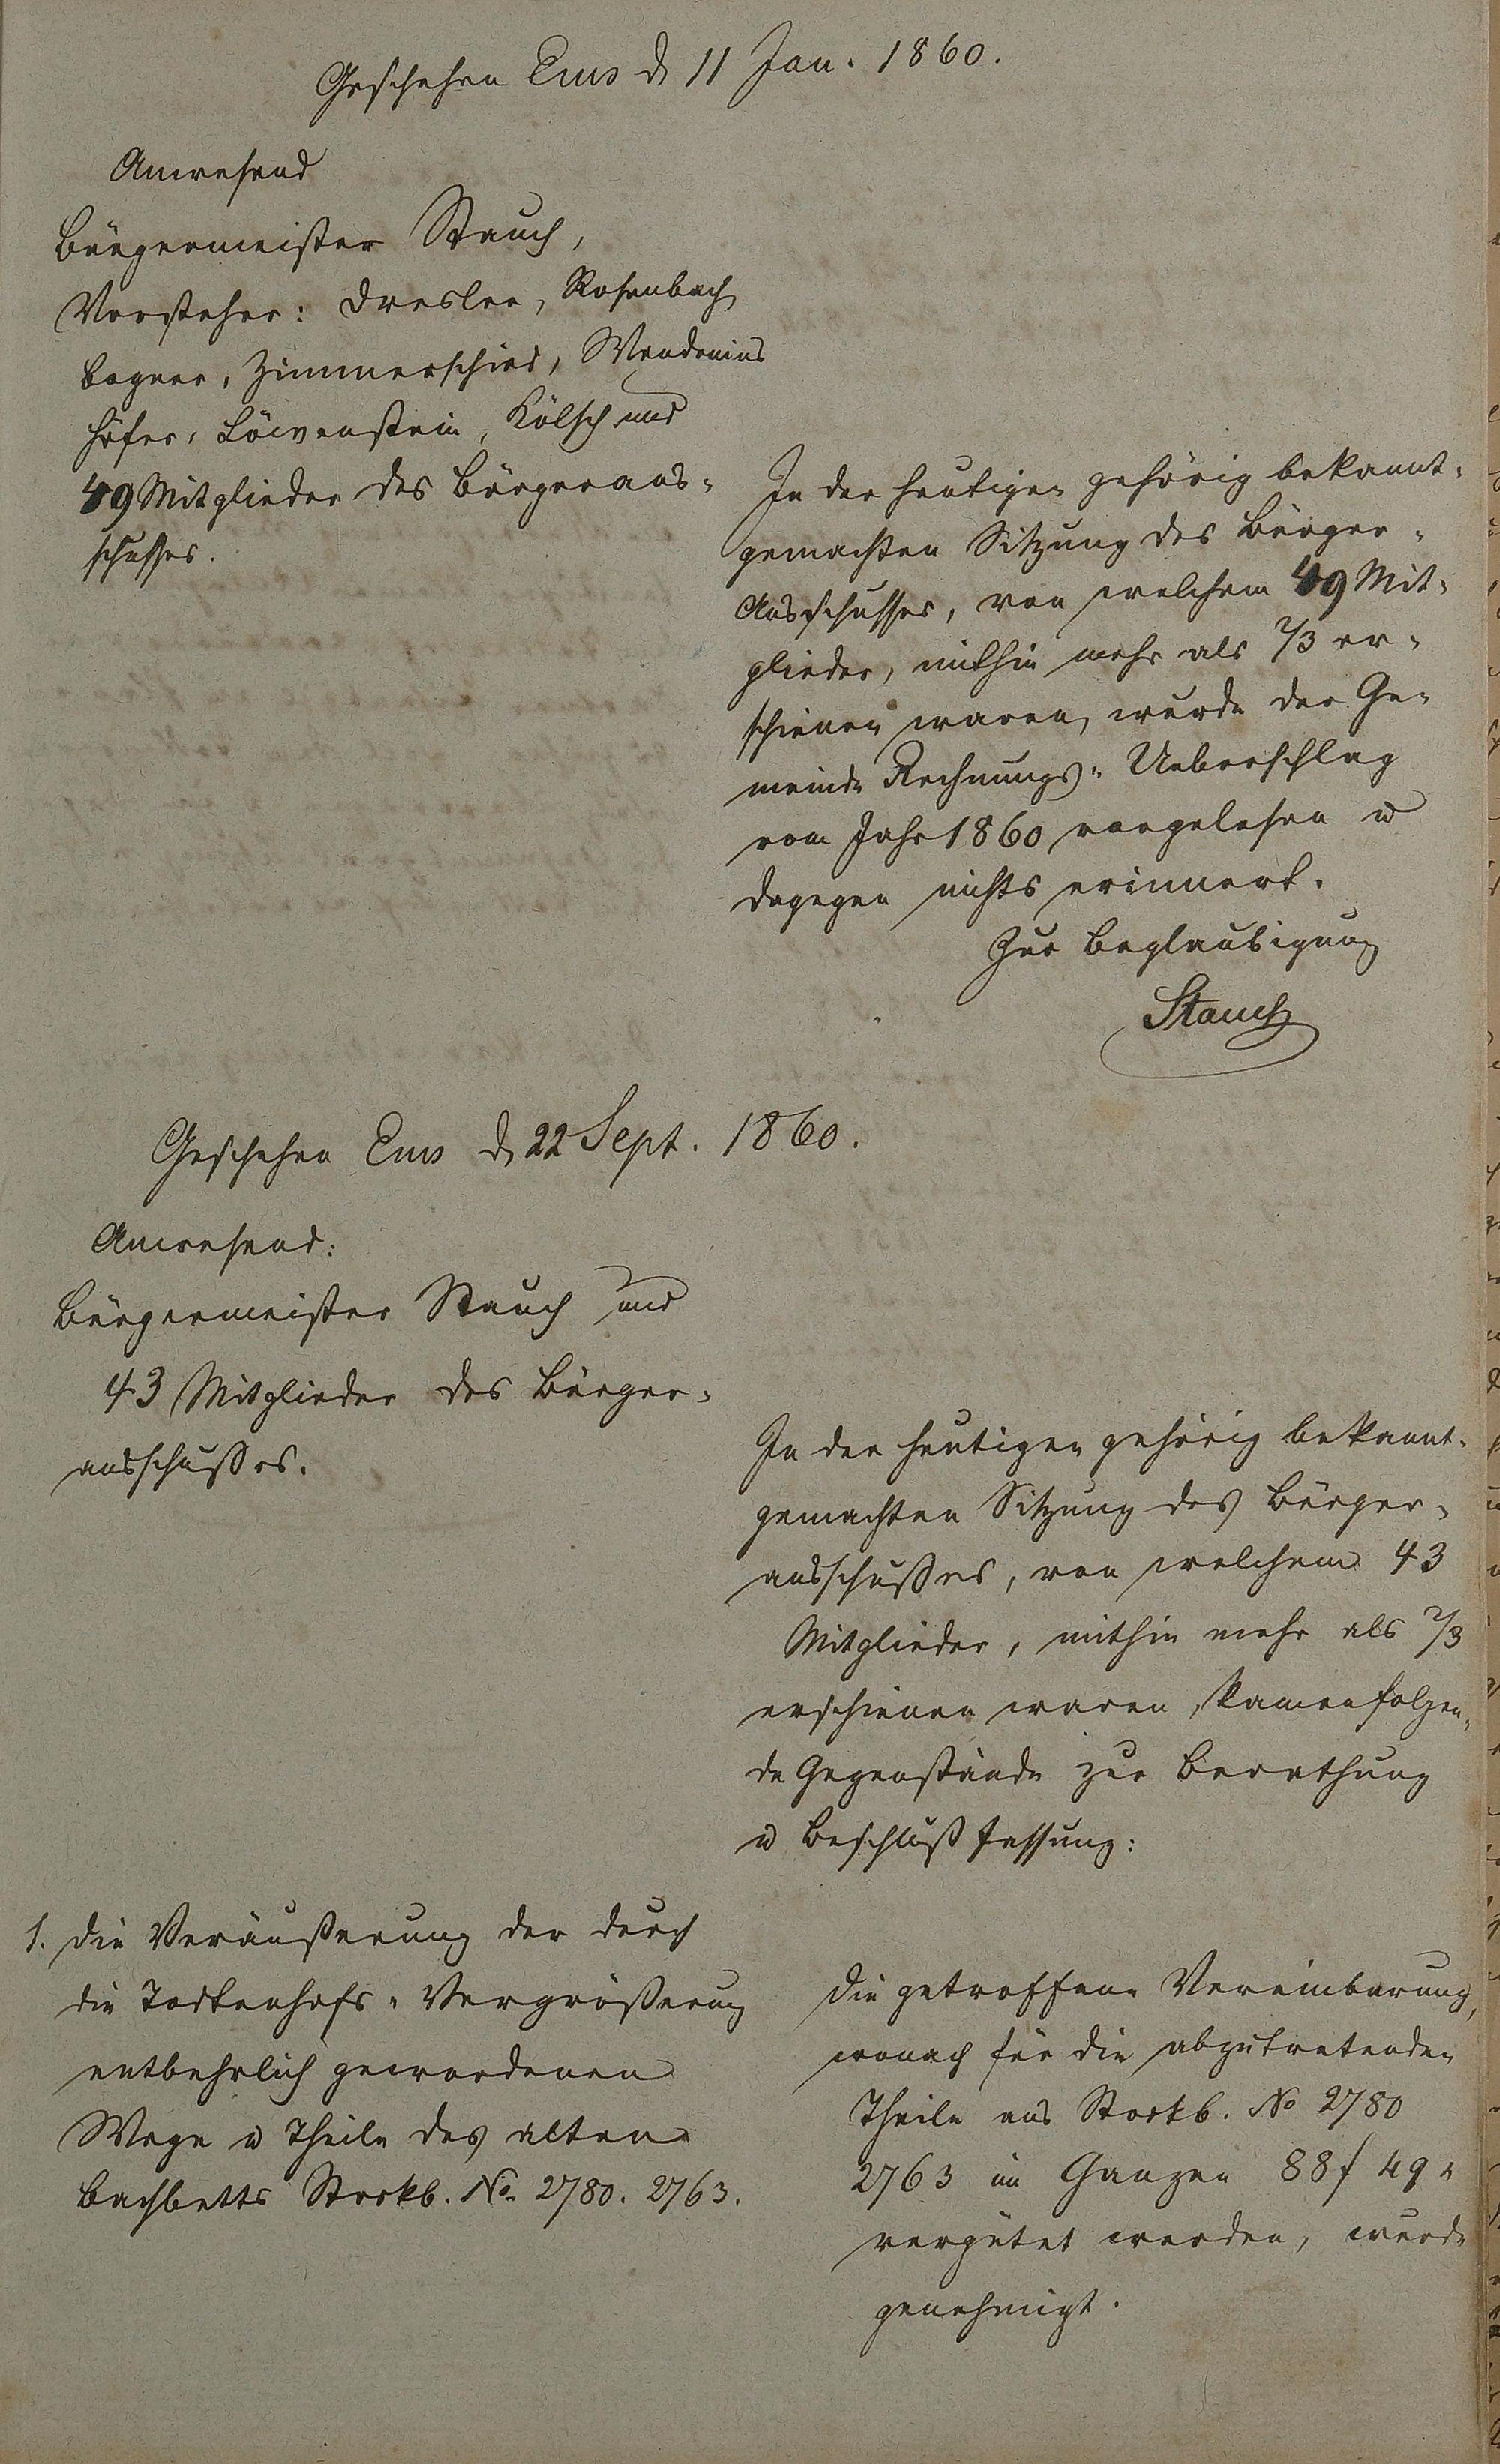 Geschehen Ems d 11 Jan. 1860.
Anwesend
Bürgermeister Stauch,
Vorsteher: Dresler, Rosenbach
Bogner, Zimmerschied, Wendenius
Höfer, Löwenstein, Kölsch und
49 Mitglieder des Bürgeraus-
schusses.
In der heutigen gehörig bekannt-
gemachten Sitzung des Bürger-
Ausschusses, von welchem 49 Mit-
glieder, mithin mehr als 2/3 er-
schienen waren, wurde der Ge-
meinde Rechnungs-Ueberschlag
vom Jahr 1860 vorgelesen u
dagegen nichts erinnert.
Zur Beglaubigung
Stauch
Geschehen Ems d 22 Sept. 1860.
Anwesend:
Bürgermeister Stauch und
43 Mitglieder des Bürger-
ausschußes.
In der heutigen gehörig bekannt-
gemachten Sitzung des Bürger-
ausschußes, von welchem 43
Mitglieder, mithin mehr als 2/3
erschienen waren, kamen folgen-
de Gegenstände zur Berathung
u Beschlußfassung:
1. Die Veräußerung der durch
die Todtenhofs-Vergrößerung
entbehrlich gewordenen
Wege u Theile des alten
Bachbetts Stockb. No 2780. 2763.
Die getroffene Vereinbarung,
wonach für die abzutretenden
Theile aus Stockb. No 2780
2763 im Ganzen 88 f 49 x
vergütet werden, wurde
genehmigt.